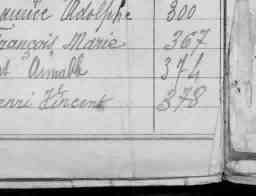 aurice Adolphe 300
rançois Marie 367
st Armall 374
enri Vincent 378